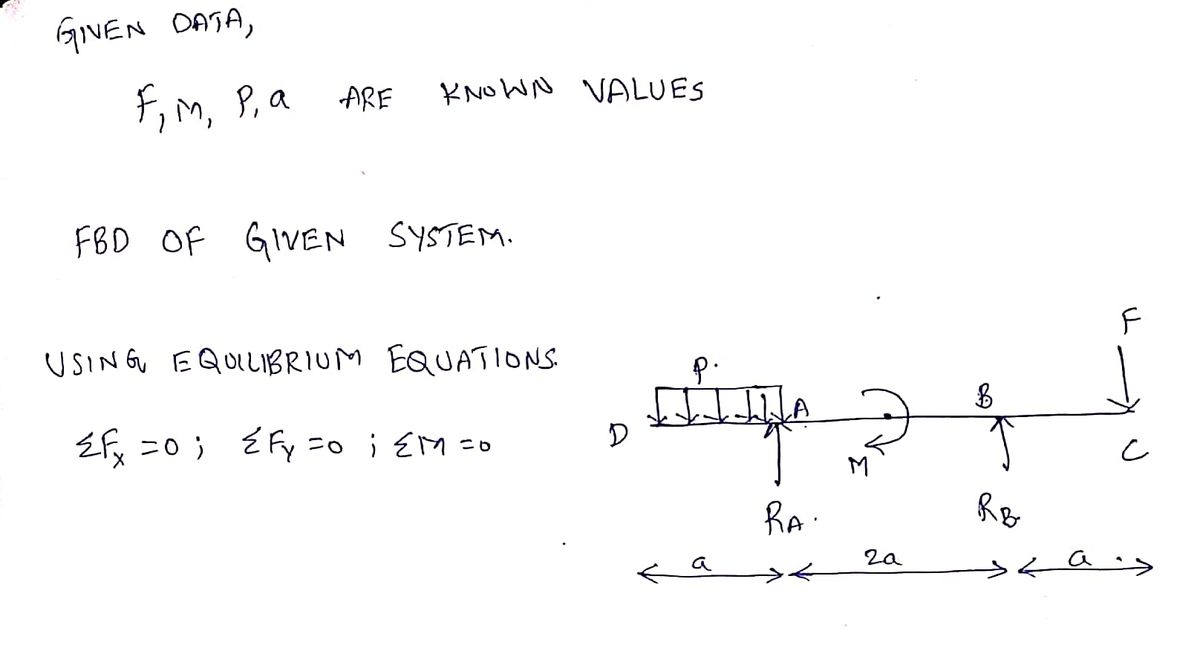 GIVEN DATA,
F, M, P, a ARE KNOWN VALUES
FBD OF GIVEN SYSTEM.
USING EQUILIBRIUM EQUATIONS.
ΣFx =0 ; ΣFy =0 ; ΣM =0
F
P.
A
B
D
M
C
RA.
RB
a
2a
a